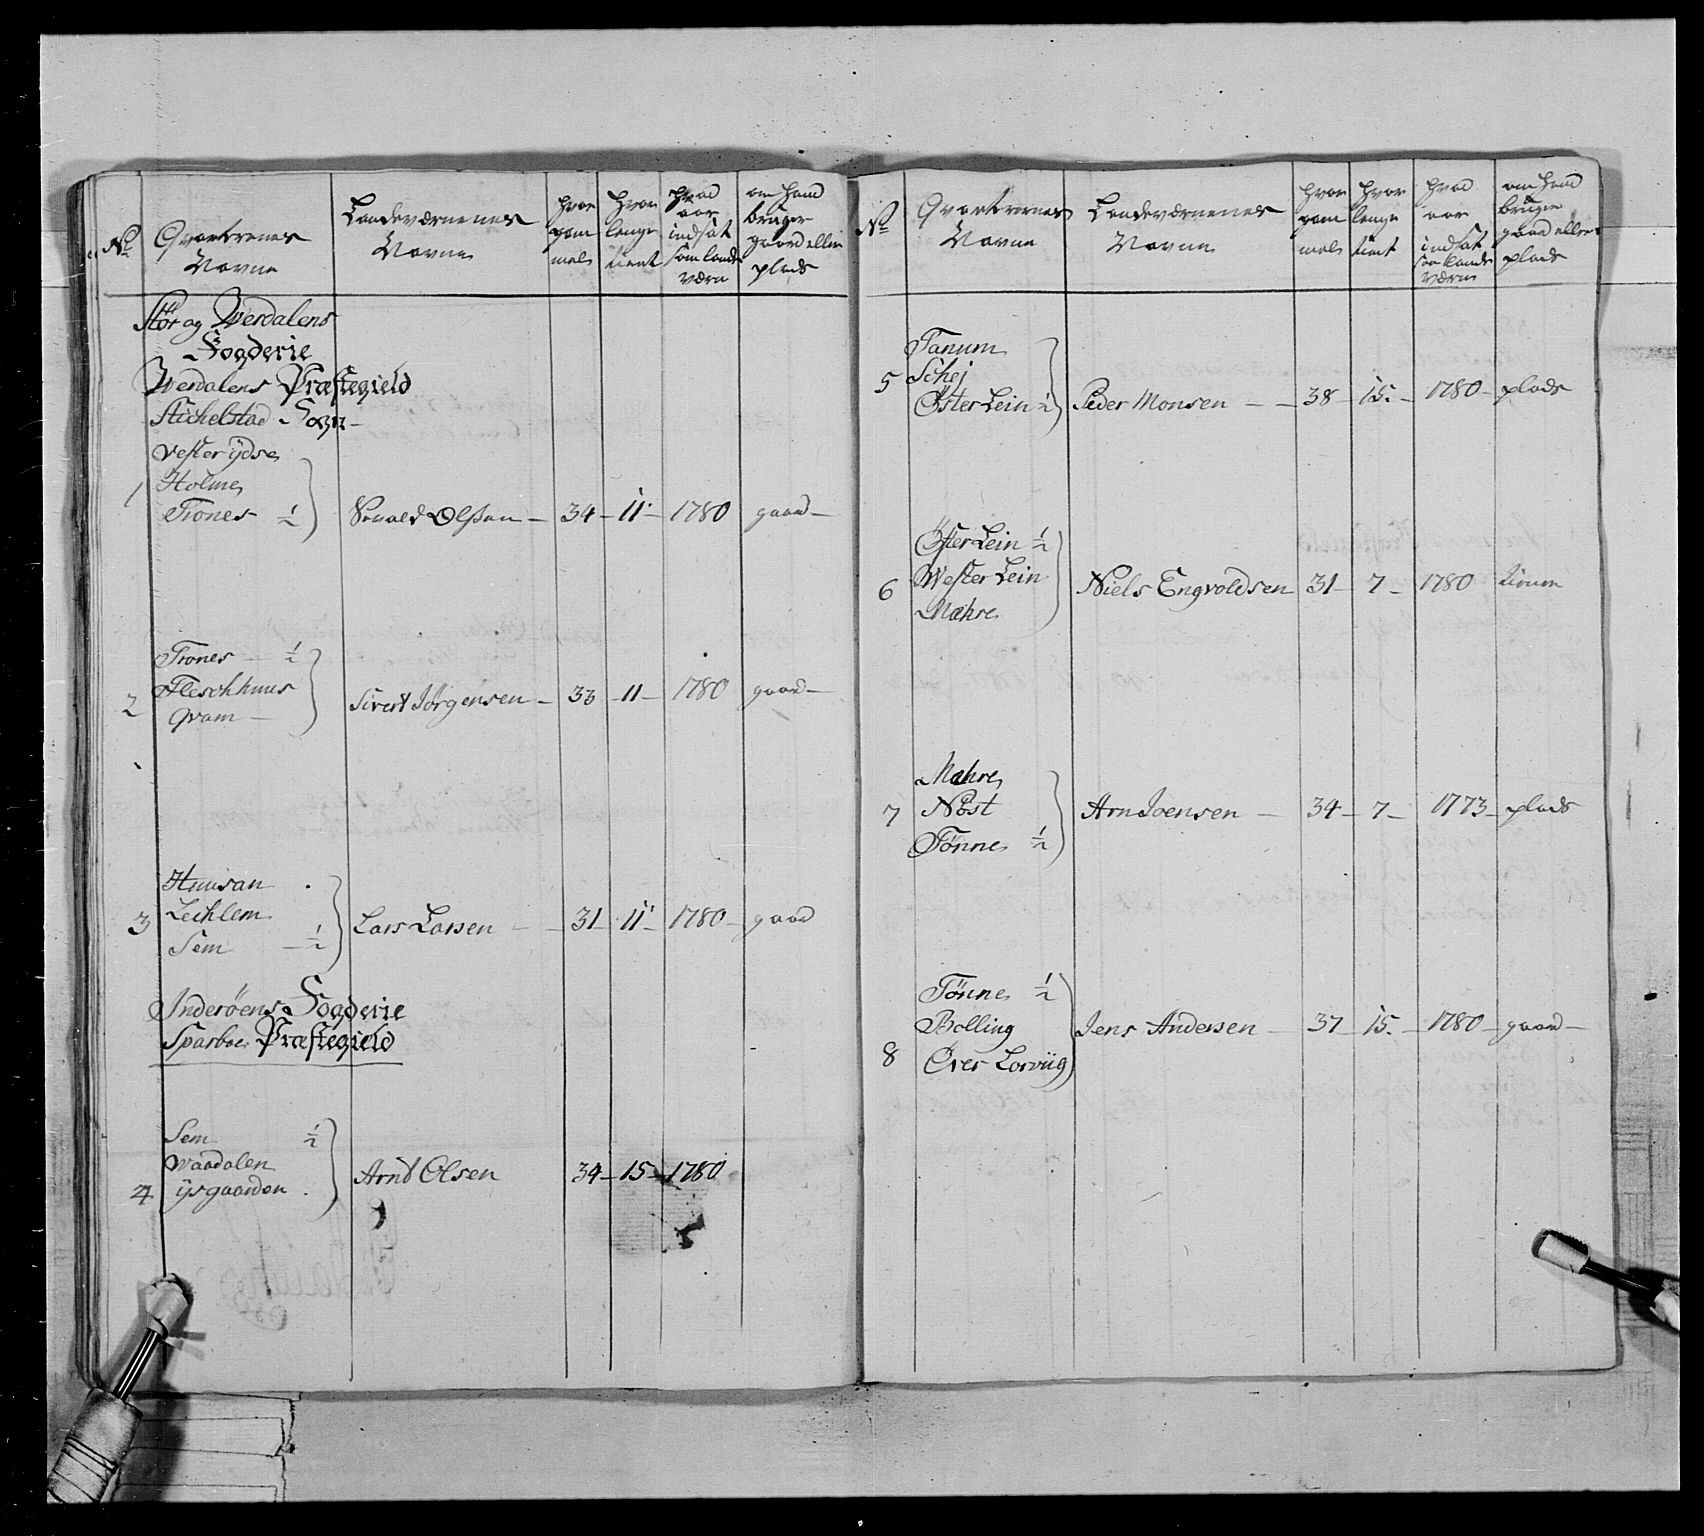 No Qvarterernes Navne
Landeværnernes Navne
hvor gammel
hvor lenge tient
hvad aar indsat som landeværn
om hand bruger gaard eller plads
Stör og Werdalens
Fogderie
Werdalens Præstegield
Stichelstad Sogn
Vester ÿdse
Holme
1 Trones ½ Olsen 34 11 1780 gaard
Trones ½
Fleschhuus
2 Qvam Sivert Jörgensen 33 11 1780 gaard
Huusan
Lechlem
3 Sem ½ Lars Larsen 31 11 1780 gaard
Inderöens Fogderie
Sparboe Præstegield
Sem ½
Waadalen
4 ÿsgaarden Arnt Olsen 34 15 1780
No Qvarterernes Navne
Landeværnernes Navne
hvor gammel
hvor lenge tient
hvad aar indsat som landeværn
om hand bruger gaard eller plads
Tanum
5 Schej
Öster Lein ½ Peder Monsen 38 15 1780 plads
Öster Lein ½
6 Wester Lein Niels Engvoldsen 31 7 1780
Mæhre
Mæhre
7 Nöst Arn Joensen 34 7 1773 plads
Tönne ½
Tönne ½
Bolling Jens Andersen 37 15 1780 gaard
8 Over Lorviig